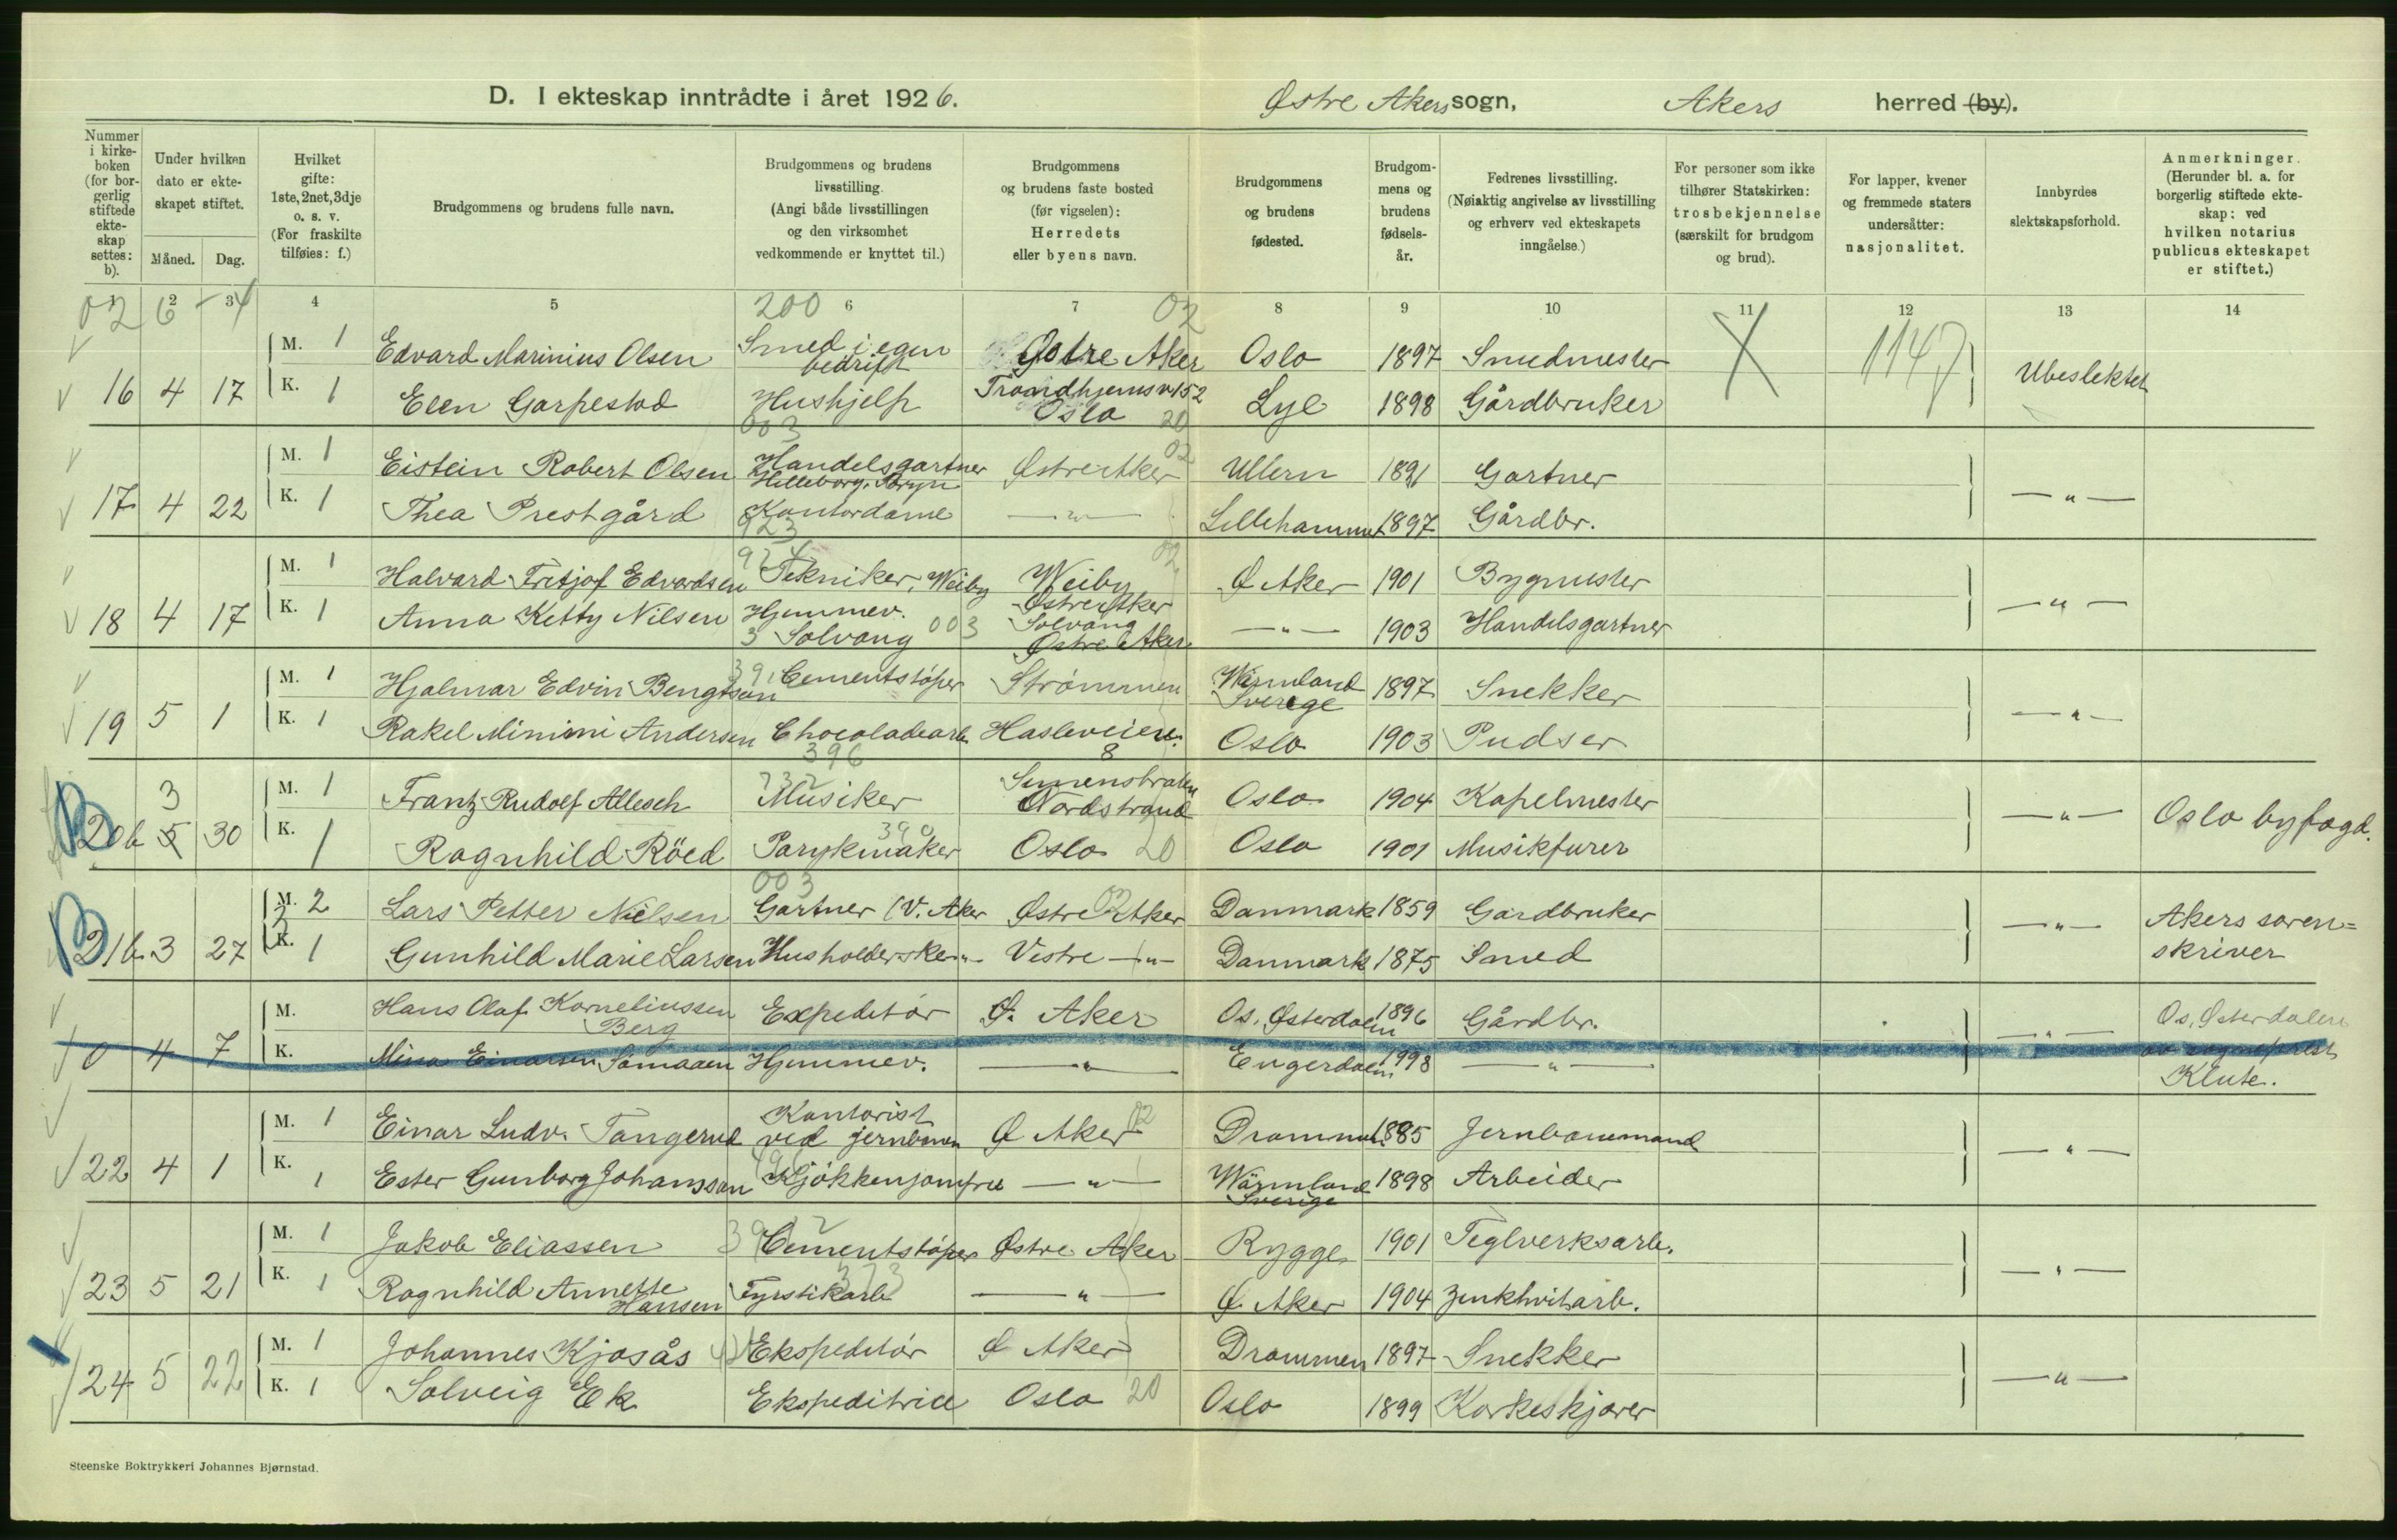 D. I ekteskap inntrådte i året 1926.
Østre Akers sogn, Akers herred (by).
Nummer i kirkeboken (for borgerlig stiftede ekteskap settes: b).
Under hvilken dato er ekteskapet stiftet.
Måned. Dag.
Hvilket gifte: 1ste, 2net, 3dje o. s. v. (For fraskilte tilføies: f.)
Brudgommens og brudens fulle navn.
Brudgommens og brudens livsstilling. (Angi både livsstillingen og den virksomhet vedkommende er knyttet til.)
Brudgommens og brudens faste bosted (før vigselen): Herredets eller byens navn.
Brudgommens og brudens fødested.
Brudgommens og brudens fødselsår.
Fedrenes livsstilling. (Nøiaktig angivelse av livsstilling og erhverv ved ekteskapets inngåelse.)
For personer som ikke tilhører Statskirken: trosbekjennelse (særskilt for brudgom og brud).
For lapper, kvener og fremmede staters undersåtter: nasjonalitet.
Innbyrdes slektskapsforhold.
Anmerkninger. (Herunder bl. a. for borgerlig stiftede ekteskap: ved hvilken notarius publicus ekteskapet er stiftet.)
1 2 3 4 5 6 7 8 9 10 11 12 13 14
02 6 - 4 200 02
M. 1 Edvard Marinius Olsen Smed i egen bedrift Østre Aker Oslo 1897 Smedmester X 1147
16 4 17 K. 1 Elen Garpestad Hushjelp Trondhjemsv 152 Oslo 20 Lye 1898 Gårdbruker Ubeslektet
003 02
M. 1 Eistein Robert Olsen Handelsgartner Helleborg, Bryn Østre Aker Ullern 1891 Gartner
17 4 22 K. 1 Thea Prestgård Kontordame — " — Lillehammer 1897 Gårdbr. — " —
923
924 02
M. 1 Halvard Fritjof Edvardsen Tekniker, Weiby Weiby Østre Aker Ø Aker 1901 Bygmester
18 4 17 K. 1 Anna Ketty Nilsen Hjemmev. Solvang 003 Solvang Østre Aker — " — 1903 Handelsgartner — " —
M. 1 Hjalmar Edvin Bengtson 391 Cementstöper Strømmen Wermland Sverege 1897 Snekker
19 5 1 K. 1 Rakel Minimi Andersen Chocoladearb. Hasleveien 8 Oslo 1903 Pudser — " —
396
3 M. 1 Frantz Rudolf Allesch 732 Musiker Simenstraten Nordstrand Oslo 1904 Kapelmester
20 b 5 30 K. 1 Ragnhild Röed Parykmaker 390 Oslo 20 Oslo 1901 Musikfurer — " — Oslo byfogd.
003
M. 2 Lars Petter Nielsen Gartner (V. Aker Østre Aker 02 Danmark 1859 Gardbruker
21 b. 3 27 K. 1 Gunhild Marie Larsen Husholderske — " — Vestre — " — Danmark 1875 Smed — " — Akers sorenskriver
M. Hans Olaf Korneliussen Berg Expeditör Ø. Aker Os, Østerdalen 1896 Gårdbr.
0 4 7 K. Mina Einarsen Sømaaen Hjemmev. — " — Engerdalen 1998 — " — — " — Os, Østerdalen av sogneprest Klute.
M. 1 Einar Ludv. Tangerud Kontorist ved jernbanen Ø Aker 02 Drammen 1885 Jernbanemand
22 4 1 K. 1 Ester Gunborg Johansson Kjökkenjomfru — " — Wärmland Sverige 1898 Arbeider — " —
M. 1 Jakob Eliassen Cementstöper Østre Aker Rygge 1901 Teglverksarb.
23 5 21 K. 1 Ragnhild Annette Hansen Fyrstikarb 373 — " — Ø. Aker 1904 Zinkhvitarb. — " —
M. 1 Johannes Kjosås Ekspeditör Ø Aker Drammen 1897 Snekker
24 5 22 K. 1 Solveig Ek Ekspeditrice Oslo 20 Oslo 1899 Korkeskjærer — " —
Steenske Boktrykkeri Johannes Bjørnstad.